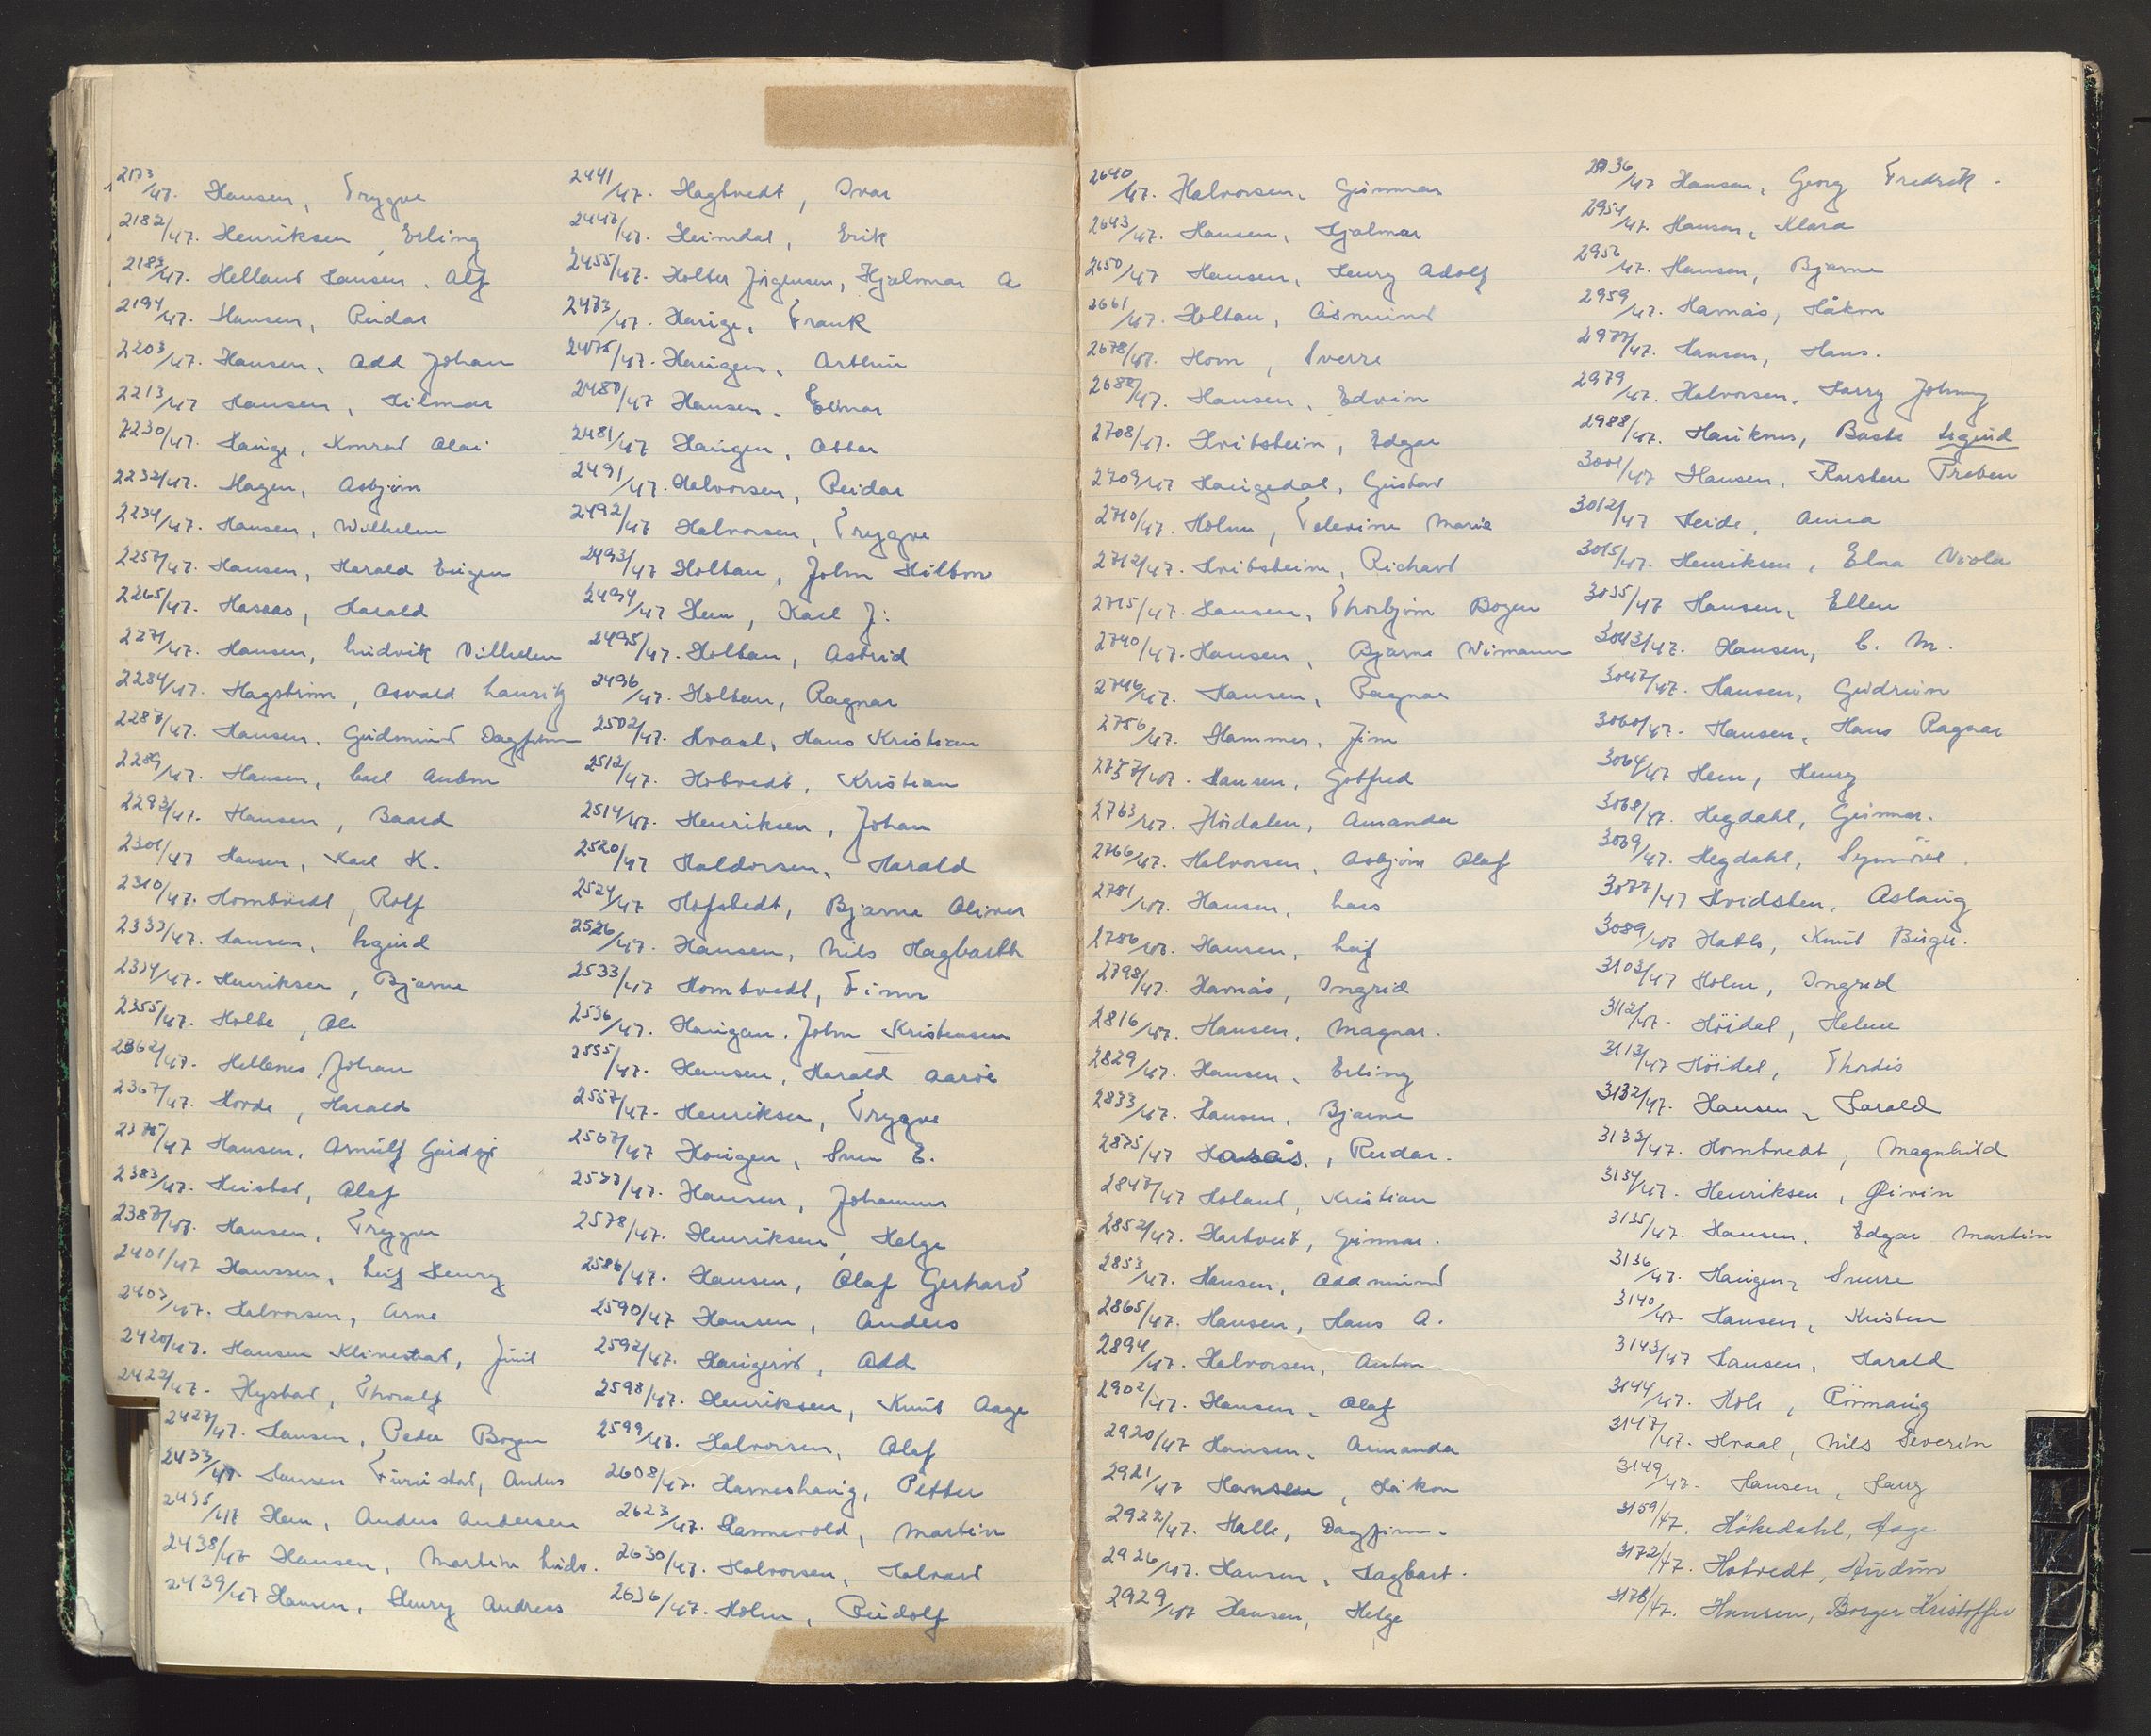 2173/47. Hansen, Trygve
2182/47. Henriksen, Erling
2183/47. Helland Hansen, Alf
2194/47. Hansen, Reidar
2203/47. Hansen, Odd Johan
2213/47 Hansen, Hilmar
2230/47. Hauge, Konrad Olai
2232/47. Hagen, Asbjørn
2234/47. Hansen, Wilhelm
2257/47. Hansen, Harald Eugen
2265/47. Hasaas, Harald
2271/47. Hansen, Ludvik Vilhelm
2284/47. Hagstrøm, Osvald Lauritz
2287/47. Hansen, Gudmund Dagfinn
2289/47. Hansen, Carl Anton
2293/47. Hansen, Baard
2301/47 Hansen, Karl K.
2310/47. Hombvedt, Rolf
2333/47. Hansen, Sigurd
2334/47. Henriksen, Bjarne
2355/47. Holte, Ole
2362/47. Hellenes, Johan
2367/47. Horde, Harald
Hansen, Arnulf
2383/47. Heistad, Olaf
2387/47. Hansen, Trygve
2401/47 Hanssen, Leif Henry
2403/47. Halvorsen, Arne
2420/47. Hansen Klinestad, Juul
2422/47. Hystad, Thoralf
2427/47. Hansen, Peder Bogen
2433/47 Hansen Furustad, Anders
2435/47 Hem, Anders Andersen
2438/47 Hansen, Martin Ludv.
2439/47 Hansen, Henry Andreas
2441/47. Hagtvedt, Ivar
2447/47. Heimdal, Erik
2455/47. Holter Jørgensen, Hjalmar A
2473/47. Hauge, Frank
2475/47. Haugen, Arthur
2480/47 Hansen, Einar
2481/47 Haugen, Ottar
2491/47. Halvorsen, Reidar
2492/47 Halvorsen, Trygve
2493/47 Holtan, John Hilton
2494/47 Hem, Karl J.
2495/47. Holtan, Astrid
2496/47. Holtan, Ragnar
2502/47. Hvaal, Hans Kristian
2512/47. Hotvedt, Kristian
2514/47. Henriksen, Johan
2520/47 Haldorsen, Harald
2524/47 Hofstedt, Bjarne Oliver
2526/47. Hansen, Nils Hagbarth
2533/47 Hombvedt, Finn
2536/47. Haugan, John Kristensen
2555/47. Hansen, Harald Aarøe
2557/47. Henriksen, Trygve
2567/47 Haugen, Sven E.
2577/47. Hansen, Johannes
2578/47. Henriksen, Helge
2586/47. Hansen, Olaf Gerhard
2590/47 Hansen, Anders
2592/47. Haugerød, Odd
2598/47. Henriksen, Knut Aage
2599/47. Halvorsen, Olaf
2608/47. Harneshaug, Petter
2623/47. Hannevold, Martin
2630/47. Halvorsen, Halvard
2636/47. Holm, Rudolf
2640/47. Halvorsen, Gunnar
2643/47. Hansen, Hjalmar
2650/47 Hansen, Henry Adolf
2661/47. Holtan, Åsmund
2678/47. Horn, Sverre
2682/47. Hansen, Edvin
2708/47. Hvitstein, Edgar
2709/47 Haugedal, Gustav
2710/47. Holm, Televine Marie
2712/47. Hvitstein, Richard
2715/47. Hansen, Thorbjørn Bogen
2740/47. Hansen, Bjarne Wimann
2746/47. Hansen, Ragnar
2756/47. Hammer, Jim
2757/47. Hansen, Gotfred
2763/47. Høidalen, Amanda
2766/47. Halvorsen, Asbjørn Olaf
2781/47. Hansen, Lars
2786/47. Hansen, Leif
2798/47. Havnås, Ingrid
2816/47. Hansen, Magnar.
2829/47. Hansen, Erling
2833/47. Hansen, Bjarne
2875/47 Hasås, Reidar.
2847/47 Holand, Kristian
2852/47. Hartveit, Gunnar.
2853/47. Hansen, Oddmund
2865/47. Hansen, Hans A.
2894/47. Halvorsen, Anton
2902/47. Hansen, Olaf
2920/47 Hansen, Amanda
2921/47 Hansen, Håkon
2922/47. Halle, Dagfinn.
2926/47. Hansen, Hagbart.
2929/47 Hansen, Helge
2936/47 Hansen, Georg Fredrik.
2954/47. Hansen, Klara
2956/47. Hansen, Bjarne
2959/47. Harnås, Håkon
2977/47. Hansen, Hans.
2979/47. Halvorsen, Harry Johnny
2988/47. Hauknes, Sigurd
3001/47 Hansen, Karsten Preben
3012/47 Heide, Anna
3015/47. Henriksen, Elna Viola
3035/47 Hansen, Ellen
3043/47. Hansen, C. M.
3047/47. Hansen, Gudrun
3060/47. Hansen, Hans Ragnar
3064/47 Hem, Henry
3068/47. Hegdahl, Gunnar.
3069/47. Hegdahl, Synnöve.
3077/47 Hvidsten, Aslaug
3089/47 Hatlo, Knut Birger.
3103/47 Holm, Ingrid
3112/47. Höidal, Helene
3113/47 Höidal, Thordis
3132/47. Hansen, Harald
3133/47. Hombvedt, Magnhild
3134/47. Henriksen, Eivin
3135/47. Hansen, Edgar Martin
3136/47. Haugen, Sverre
3140/47 Hansen, Kristen
3143/47 Hansen, Harald
3144/47. Hole, Römaug
3147/47. Hvaal, Nils Severin
3149/47. Hansen, Harry
3159/47. Håkedahl, Aage
3172/47. Hotvedt, Audun
3176/47. Hansen, Borger Kristoffer